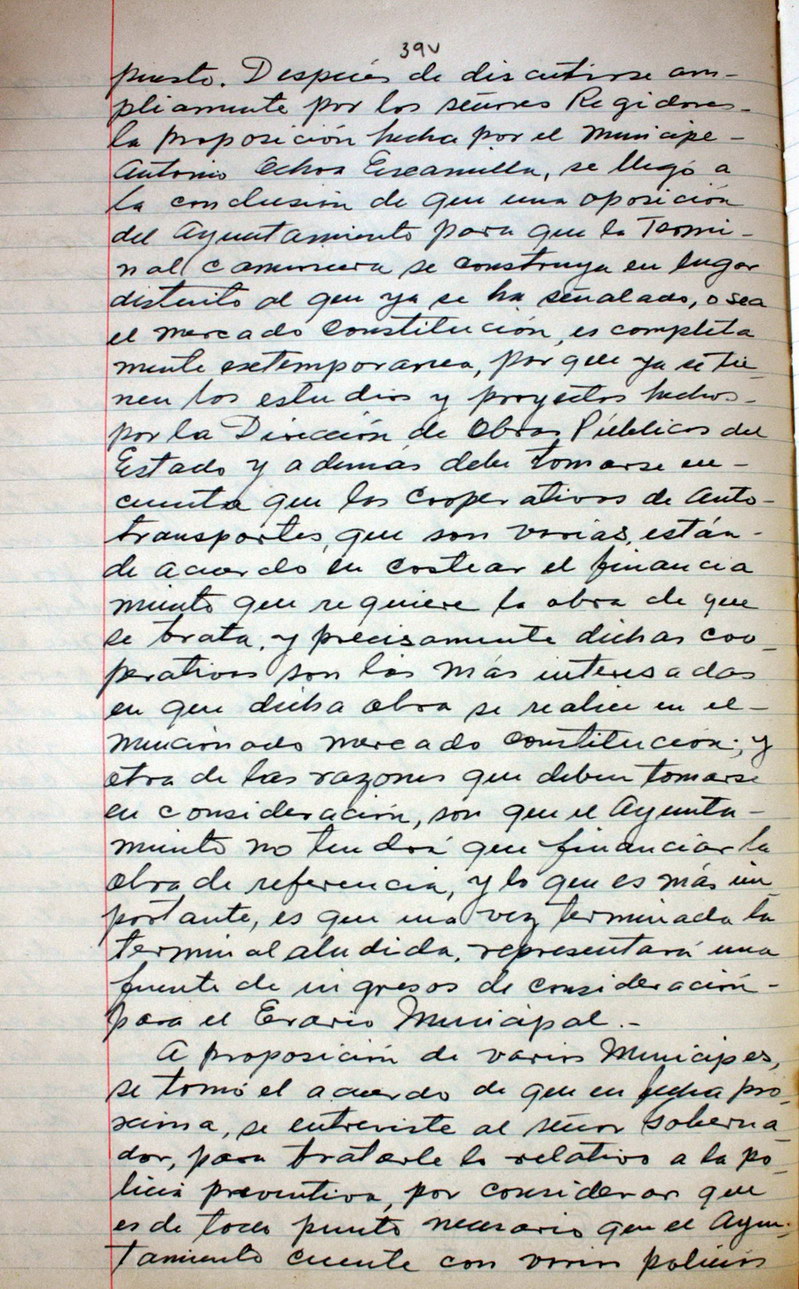 39v
puesto. Después de discutirse am-
pliamente por los señores Regidores-
la proposición hecha por el munícipe-
Antonio Ochoa Escamilla, se llegó a
la conclusión de que una oposición
del Ayuntamiento para que la Termi-
nal camionera se construya en lugar
distinto al que ya se ha señalado, o sea
el mercado Constitución, es completa
mente extemporanea, porque ya se tie-
nen los estudios y proyectos hechos-
por la Dirección de Obras Públicas del
Estado y además debe tomarse en-
cuenta que las Cooperativas de Auto-
transportes, que son varias, están-
de acuerdo en costear el financia
miento que requiere la obra de que
se trata, y precisamente dichas coo-
perativas son las más interesadas
en que dicha obra se realice en el-
mencionado mercado constitución; y
otra de las razones que deben tomarse
en consideración, son que el Ayunta-
miento no tendrá que financiar la
obra de referencia, y lo que es más im-
portante, es que una vez terminada la
terminal aludida, representará una
fuente de ingresos de consideración-
para el Erario Municipal.-
A proposición de varios Munícipes,
se tomó el acuerdo de que en fecha pró-
xima, se entreviste al señor Goberna-
dor, para tratarle lo relativo a la po-
licía preventiva, por considerar que
es de todo punto necesario que el Ayun-
tamiento cuente con varios policías